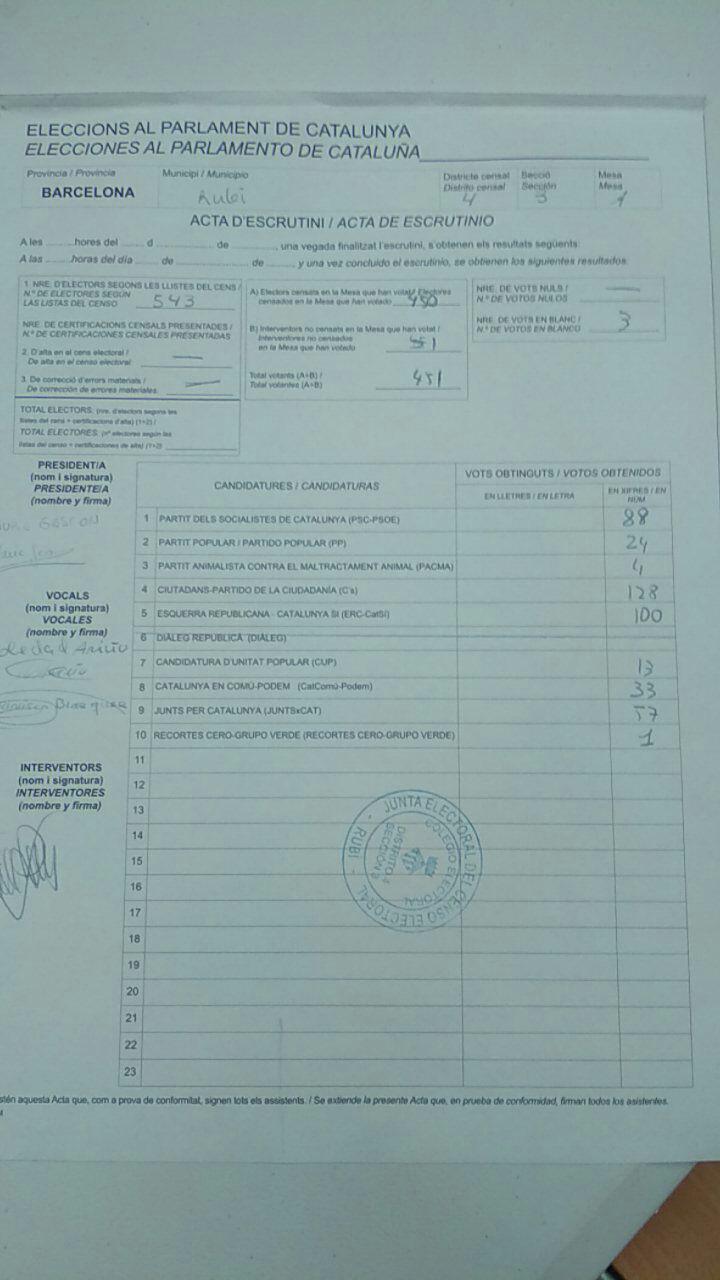 ELECCIONS AL PARLAMENT DE CATALUNYA
ELECCIONES AL PARLAMENTO DE CATALUÑA
Província / Provincia
BARCELONA
Municipi / Municipio
Rubi
Districte censal
Distrito censal
4
Secció
Sección
3
Mesa
Mesa
1
ACTA D'ESCRUTINI / ACTA DE ESCRUTINIO
A les ........ hores del ...... d ................ de ............, una vegada finalitzat l'escrutini, s'obtenen els resultats següents:
A las ........ horas del día ...... de ................ de ............, y una vez concluido el escrutinio, se obtienen los siguientes resultados:
1. NRE. D'ELECTORS SEGONS LES LLISTES DEL CENS /
N.º DE ELECTORES SEGÚN
LAS LISTAS DEL CENSO 543
NRE. DE CERTIFICACIONS CENSALS PRESENTADES /
N.º DE CERTIFICACIONES CENSALES PRESENTADAS
2. D'alta en el cens electoral /
De alta en el censo electoral: —
3. De correcció d'errors materials /
De corrección de errores materiales: —
TOTAL ELECTORS: (nre. d'electors segons les
llistes del cens + certificacions d'alta) (1+2) /
TOTAL ELECTORES: (nº electores según las
listas del censo + certificaciones de alta) (1+2)
A) Electors censats en la Mesa que han votat / Electores
censados en la Mesa que han votado 450
B) Interventors no censats en la Mesa que han votat /
Interventores no censados
en la Mesa que han votado
Total votants (A+B) /
Total votantes (A+B) 451
NRE. DE VOTS NULS /
N.º DE VOTOS NULOS —
NRE. DE VOTS EN BLANC /
N.º DE VOTOS EN BLANCO 3
PRESIDENT/A
(nom i signatura)
PRESIDENTE/A
(nombre y firma)
VOCALS
(nom i signatura)
VOCALES
(nombre y firma)
INTERVENTORS
(nom i signatura)
INTERVENTORES
(nombre y firma)
CANDIDATURES / CANDIDATURAS
VOTS OBTINGUTS / VOTOS OBTENIDOS
EN LLETRES / EN LETRA
EN XIFRES / EN NÚM
1 PARTIT DELS SOCIALISTES DE CATALUNYA (PSC-PSOE) 88
2 PARTIT POPULAR / PARTIDO POPULAR (PP) 24
3 PARTIT ANIMALISTA CONTRA EL MALTRACTAMENT ANIMAL (PACMA) 4
4 CIUTADANS-PARTIDO DE LA CIUDADANÍA (C's) 128
5 ESQUERRA REPUBLICANA - CATALUNYA SÍ (ERC-CatSí) 100
6 DIÀLEG REPÚBLICA (DIÀLEG)
7 CANDIDATURA D'UNITAT POPULAR (CUP) 13
8 CATALUNYA EN COMÚ-PODEM (CatComú-Podem) 33
9 JUNTS PER CATALUNYA (JUNTSxCAT) 57
10 RECORTES CERO-GRUPO VERDE (RECORTES CERO-GRUPO VERDE) 1
11
12
13
14
15
16
17
18
19
20
21
22
23
JUNTA ELECTORAL DEL CENSO ELECTORAL - RUBI -
COLEGIO ELECTORAL
DISTRITO 4
SECCION 3
aquesta Acta que, com a prova de conformitat, signen tots els assistents. / Se extiende la presente Acta que, en prueba de conformidad, firman todos los asistentes.